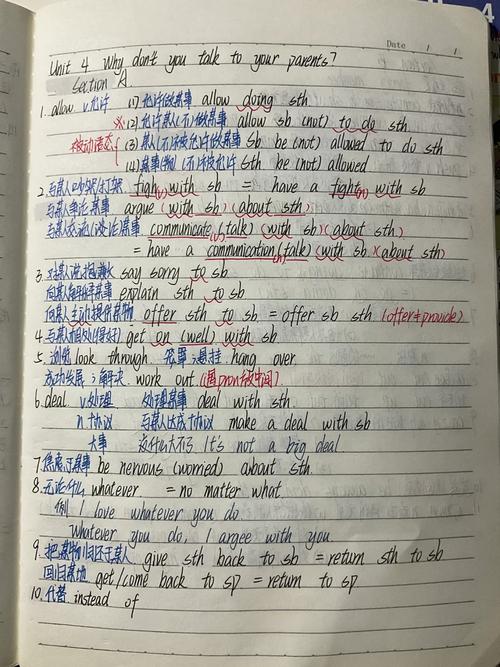 Date
Unit 4 Why don't you talk to your parents?
Section A
1. allow v.允许 (1) 允许做某事 allow doing sth
(2) 允许某人(不)做某事 allow sb (not) to do sth
被动语态 (3) 某人(不)被允许做某事 Sb be (not) allowed to do sth
(4) 某事(物)(不)被允许 Sth be (not) allowed
2. 与某人吵架/打架 fight(v) with sb = have a fight(n) with sb
与某人争论某事 argue (with sb) (about sth)
与某人交流(谈论)某事 communicate (talk) (with sb) (about sth)
= have a communication (talk) (with sb) (about sth)
3. 对某人说抱歉 say sorry to sb
向某人解释某事 explain sth to sb
向某人主动提供某物 offer sth to sb = offer sb sth (offer≠provide)
4. 与某人相处(得好) get on (well) with sb
5. 浏览 look through 笼罩;悬挂 hang over
成功发展;解决 work out (遇pron放中间)
6. deal v.处理 处理某事 deal with sth
n.协议 与某人达成协议 make a deal with sb
大事 没什么大不了 It's not a big deal
7. 焦虑于某事 be nervous (worried) about sth.
8. 无论什么 whatever = no matter what
例 I love whatever you do.
Whatever you do, I argee with you
9. 把某物归还于某人 give sth back to sb = return sth to sb
回归某地 get/come back to sp = return to sp
10. 代替 instead of